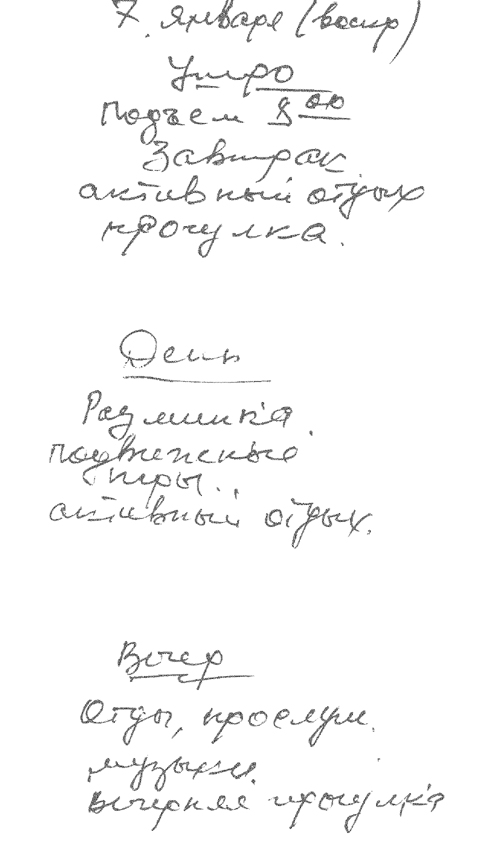 7. января (воскр)
Утро
Подъем 8 00
Завтрак
активный отдых
прогулка.
День
Разминка.
подвижные
игры..
активный отдых.
Вечер
Отды, прослуш.
музыки.
вечерняя прогулка